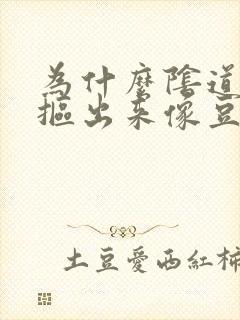 為什麼陰道
摳出來像豆
土豆愛西紅柿